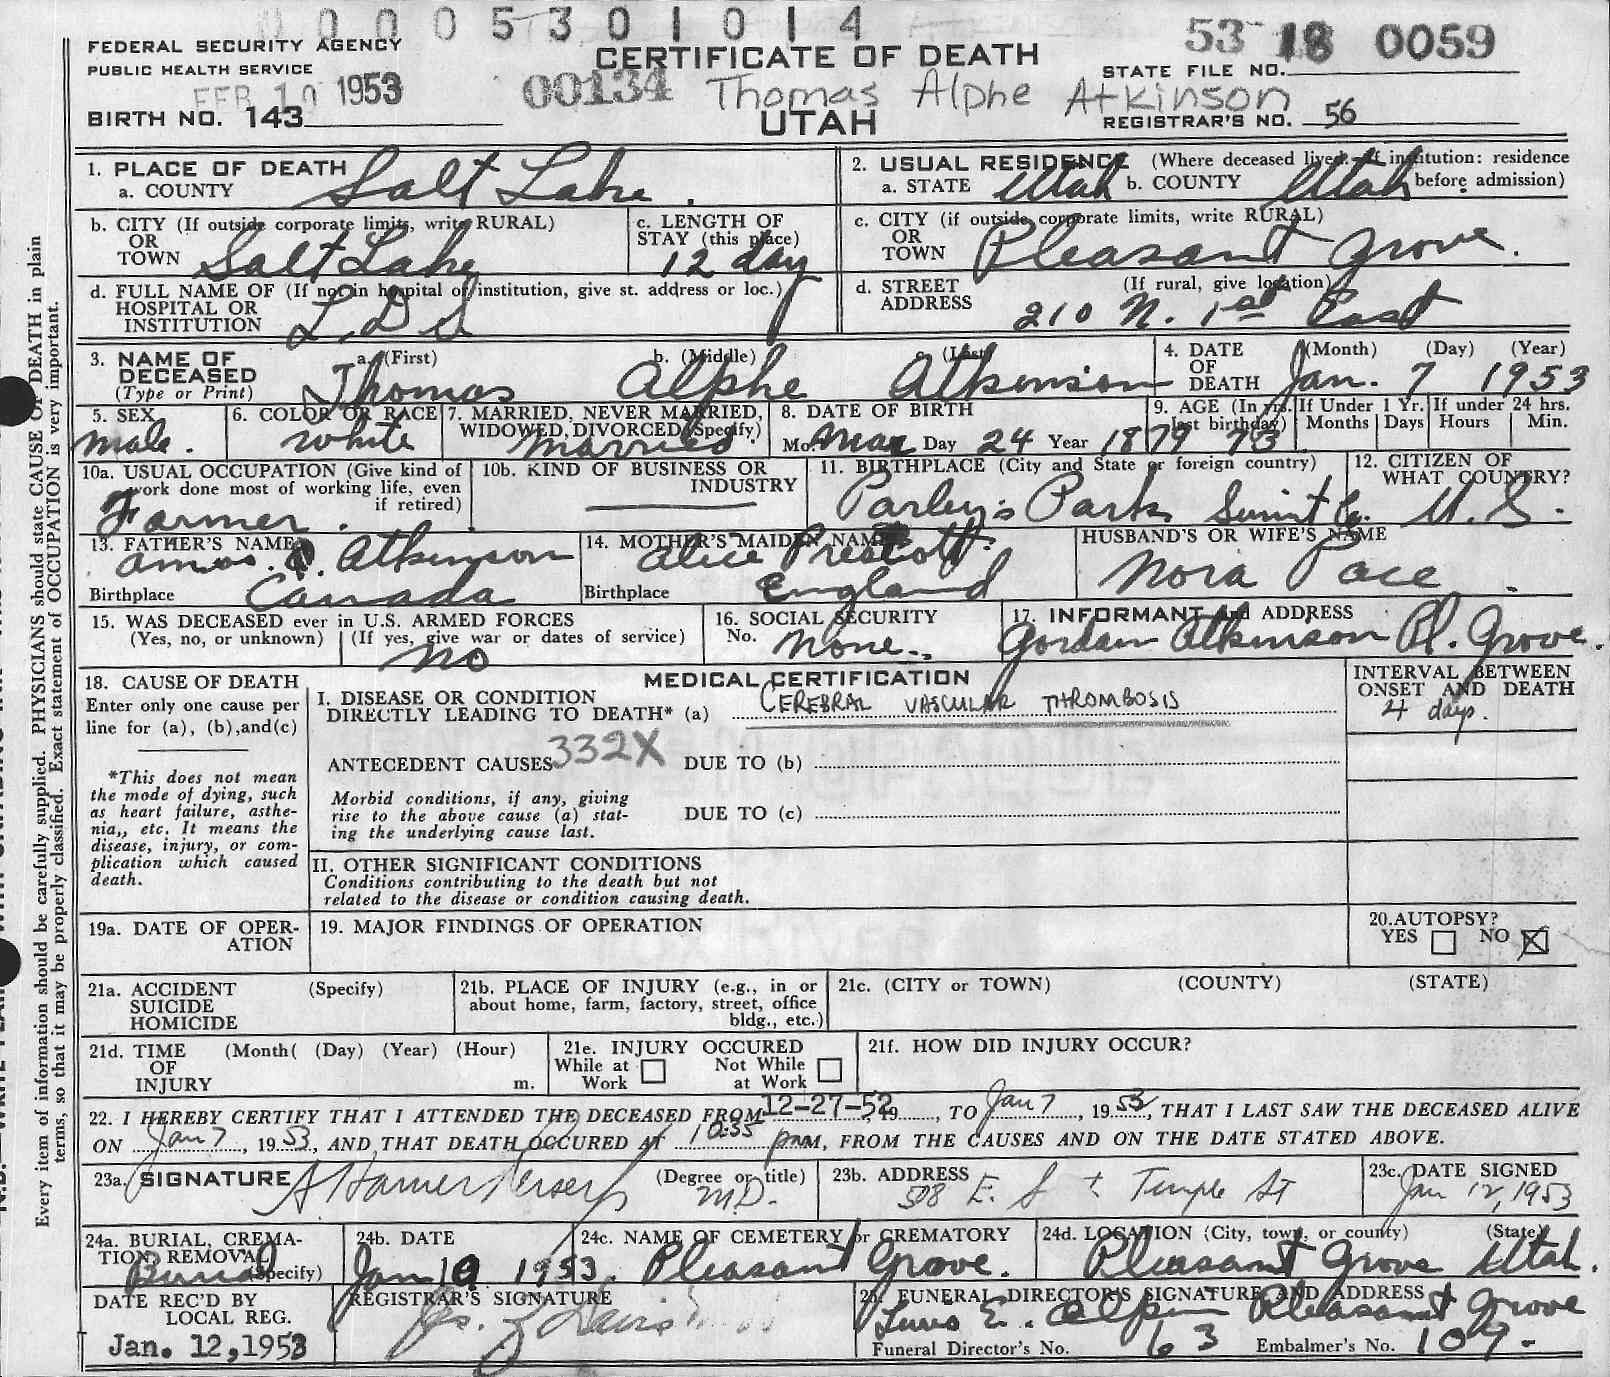 0 0 0 0 5 3 0 1 0 1 4
53 18 0059
FEDERAL SECURITY AGENCY
PUBLIC HEALTH SERVICE
CERTIFICATE OF DEATH
STATE FILE NO.
FEB 10 1953
00134 Thomas Alphe Atkinson
BIRTH NO. 143
UTAH
REGISTRAR'S NO. 56
1. PLACE OF DEATH
a. COUNTY Salt Lake.
2. USUAL RESIDENCE (Where deceased lived. If institution: residence before admission)
a. STATE Utah b. COUNTY Utah
b. CITY (If outside corporate limits, write RURAL)
OR
TOWN Salt Lake
c. LENGTH OF
STAY (this place)
12 day
c. CITY (if outside corporate limits, write RURAL)
OR
TOWN Pleasant Grove.
d. FULL NAME OF (If not in hospital or institution, give st. address or loc.)
HOSPITAL OR
INSTITUTION L.D.S
d. STREET (If rural, give location)
ADDRESS 210 N. 1st East
3. NAME OF
DECEASED
(Type or Print)
a. (First) b. (Middle) c. (Last)
Thomas Alphe Atkinson
4. DATE (Month) (Day) (Year)
OF
DEATH Jan. 7 1953
5. SEX
male.
6. COLOR OR RACE
White
7. MARRIED, NEVER MARRIED,
WIDOWED, DIVORCED (Specify)
Married.
8. DATE OF BIRTH
Mo. Mar Day 24 Year 1879
9. AGE (In yrs. last birthday) 73
If Under 1 Yr. Months Days
If under 24 hrs. Hours Min.
10a. USUAL OCCUPATION (Give kind of
work done most of working life, even
if retired)
Farmer.
10b. KIND OF BUSINESS OR
INDUSTRY
11. BIRTHPLACE (City and State or foreign country)
Parley's Park
12. CITIZEN OF
WHAT COUNTRY?
U.S.
13. FATHER'S NAME
Amos. Atkinson
Birthplace Canada
14. MOTHER'S MAIDEN NAME
Alice Prescott.
Birthplace England
HUSBAND'S OR WIFE'S NAME
Nora Pace
15. WAS DECEASED ever in U.S. ARMED FORCES
(Yes, no, or unknown) (If yes, give war or dates of service)
No
16. SOCIAL SECURITY
No. None.
17. INFORMANT and ADDRESS
Gordan Atkinson Pl. Grove.
18. CAUSE OF DEATH
Enter only one cause per
line for (a), (b),and(c)
*This does not mean
the mode of dying, such
as heart failure, asthe-
nia,, etc. It means the
disease, injury, or com-
plication which caused
death.
MEDICAL CERTIFICATION
I. DISEASE OR CONDITION
DIRECTLY LEADING TO DEATH* (a) CEREBRAL VASCULAR THROMBOSIS
INTERVAL BETWEEN
ONSET AND DEATH
4 days.
ANTECEDENT CAUSES 332X DUE TO (b)
Morbid conditions, if any, giving
rise to the above cause (a) stat-
ing the underlying cause last.
DUE TO (c)
II. OTHER SIGNIFICANT CONDITIONS
Conditions contributing to the death but not
related to the disease or condition causing death.
19a. DATE OF OPER-
ATION
19. MAJOR FINDINGS OF OPERATION
20.AUTOPSY?
YES NO
21a. ACCIDENT (Specify)
SUICIDE
HOMICIDE
21b. PLACE OF INJURY (e.g., in or
about home, farm, factory, street, office
bldg., etc.)
21c. (CITY or TOWN) (COUNTY) (STATE)
21d. TIME (Month( (Day) (Year) (Hour)
OF
INJURY m.
21e. INJURY OCCURED
While at Work
Not While at Work
21f. HOW DID INJURY OCCUR?
22. I HEREBY CERTIFY THAT I ATTENDED THE DECEASED FROM 12-27-52, 19, TO Jan 7, 1953, THAT I LAST SAW THE DECEASED ALIVE
ON Jan 7, 1953, AND THAT DEATH OCCURED AT 10:35 pm M, FROM THE CAUSES AND ON THE DATE STATED ABOVE.
23a. SIGNATURE (Degree or title)
M.D.
23b. ADDRESS
508 E. So Temple St
23c. DATE SIGNED
Jan 12, 1953
24a. BURIAL, CREMA-
TION, REMOVAL
(Specify)
Burial
24b. DATE
Jan 10 1953.
24c. NAME OF CEMETERY or CREMATORY
Pleasant Grove.
24d. LOCATION (City, town, or county) (State)
Pleasant Grove Utah.
DATE REC'D BY
LOCAL REG.
Jan. 12, 1953
REGISTRAR'S SIGNATURE
Davis
25. FUNERAL DIRECTOR'S SIGNATURE AND ADDRESS
E. Olpin Pleasant Grove
Funeral Director's No. 63 Embalmer's No. 109.
Every item of information should be carefully supplied. PHYSICIANS should state CAUSE OF DEATH in plain
terms, so that it may be properly classified. Exact statement of OCCUPATION is very important.